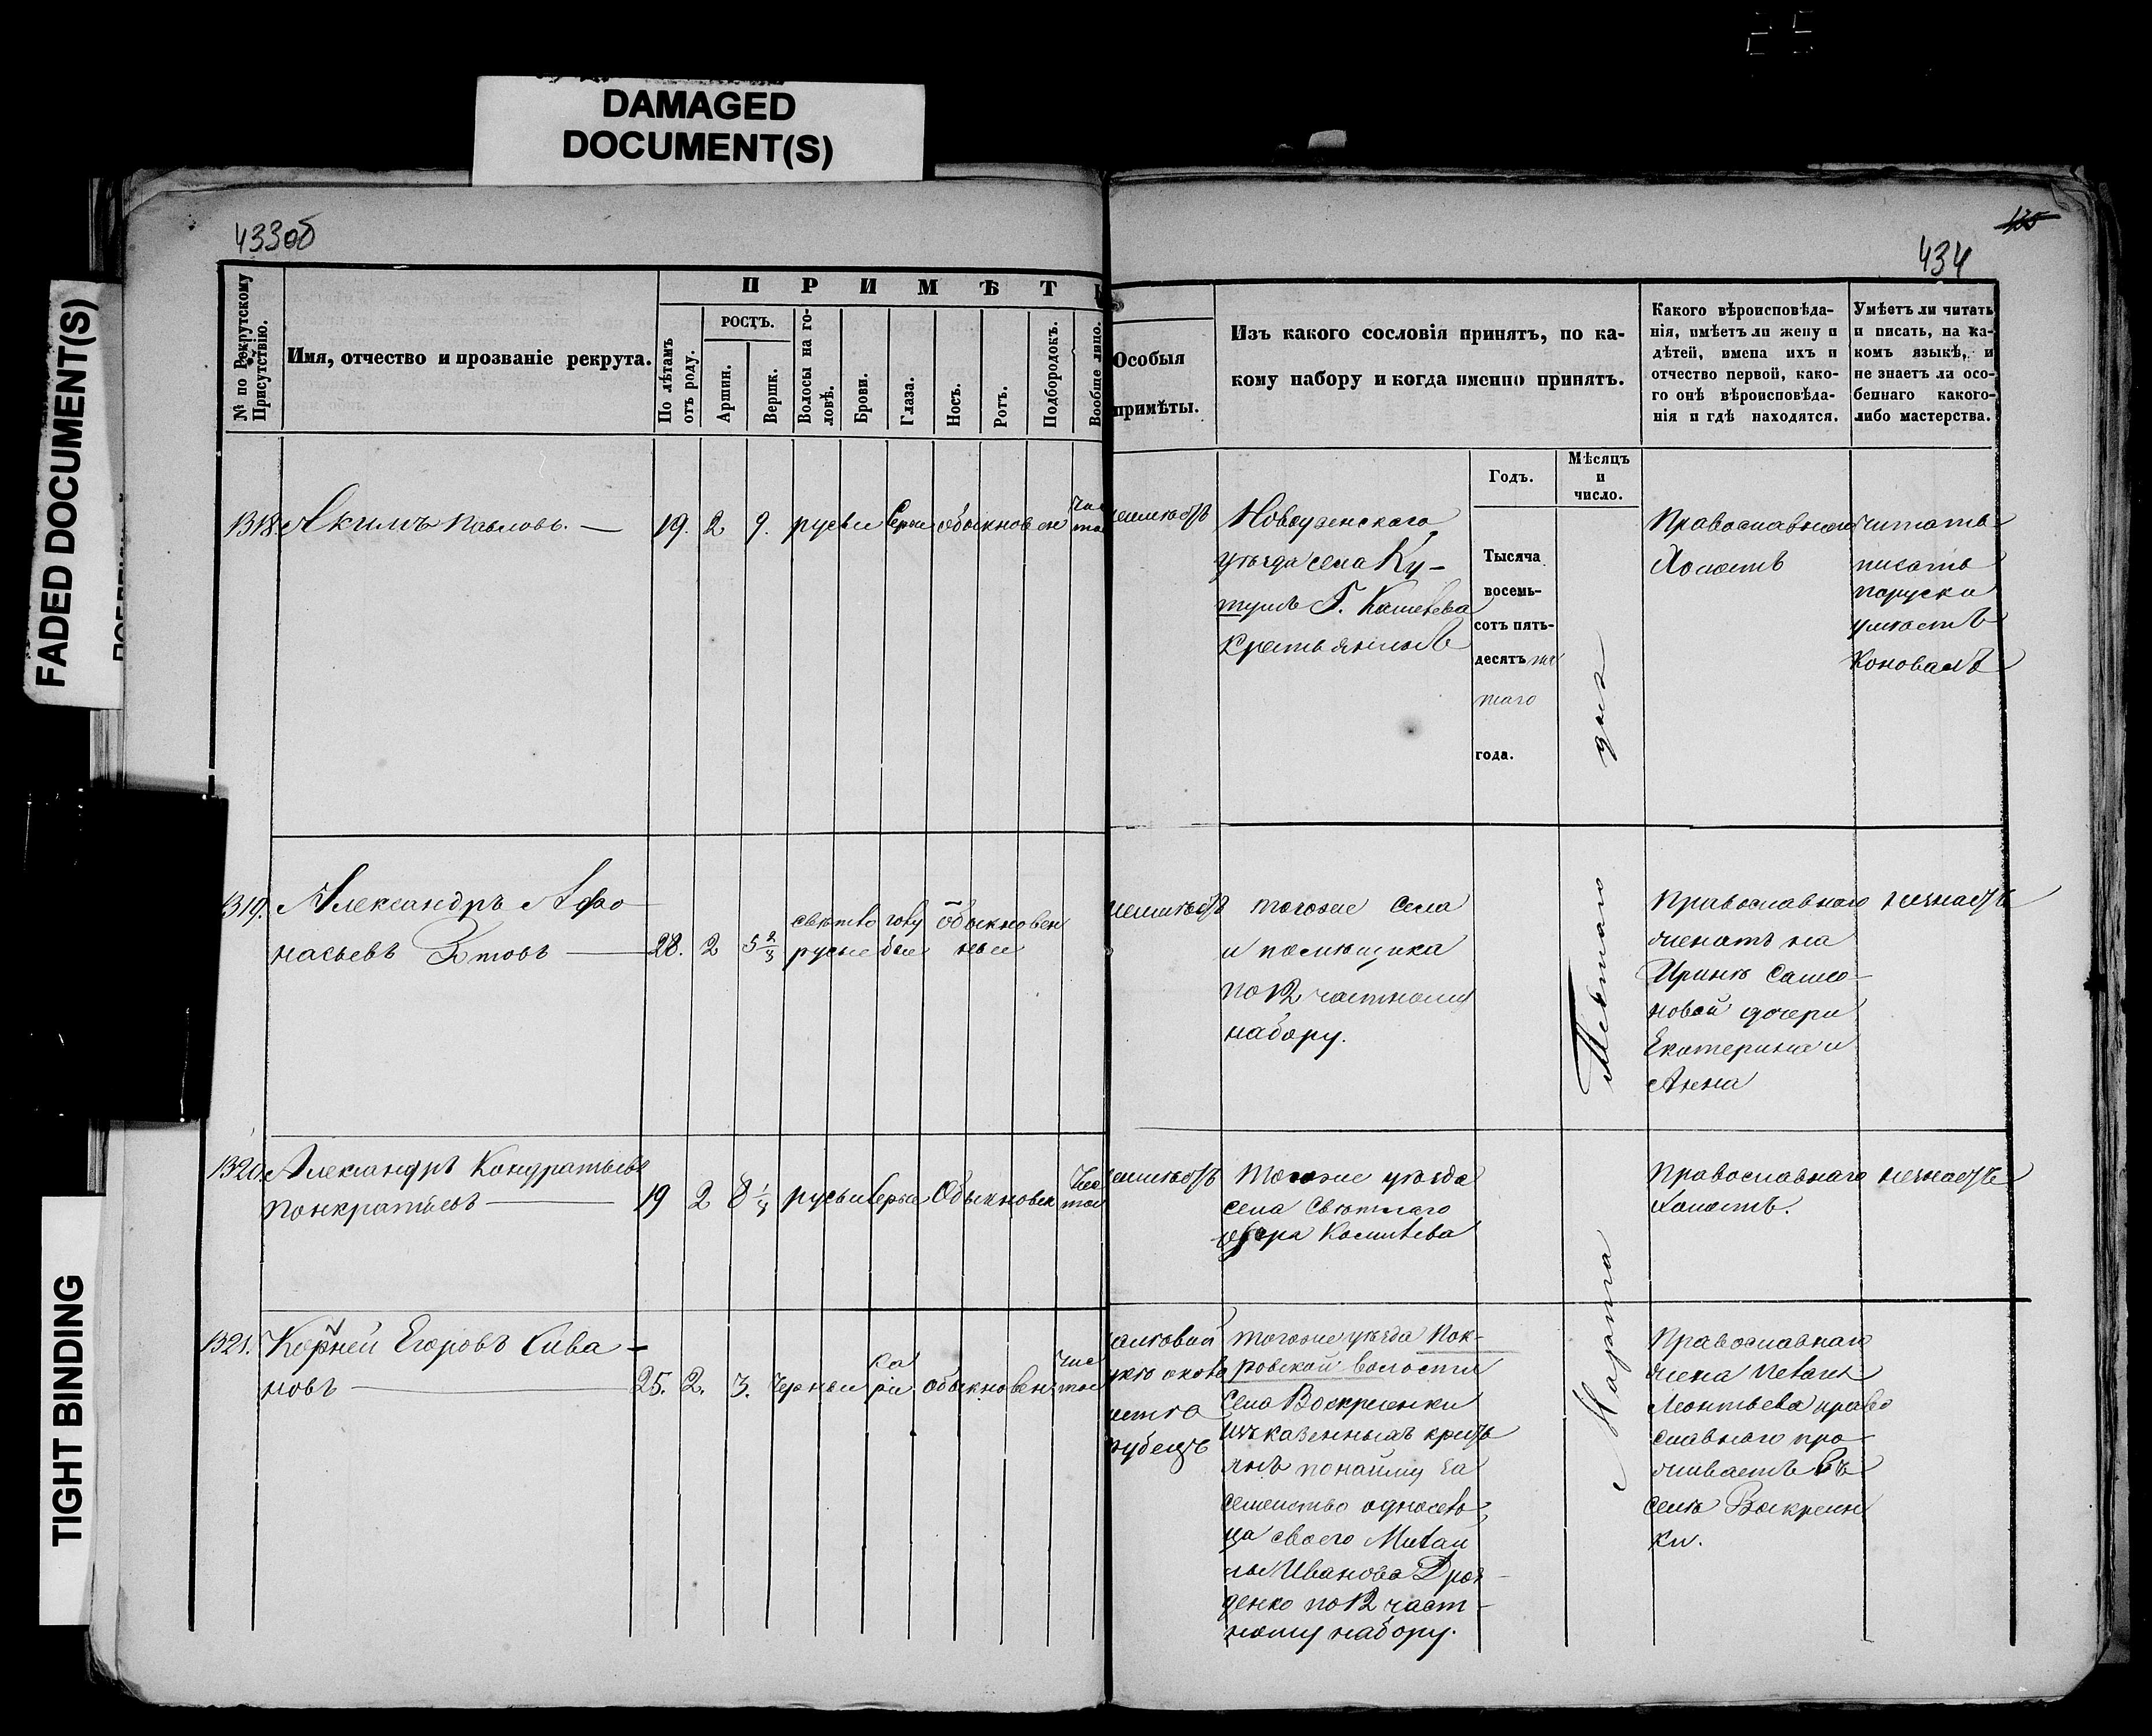 DAMAGED
DOCUMENT(S)
FADED DOCUMENT(S)
TIGHT BINDING
433об
434
№ по Рекрутскому
Присутствію.
Имя, отчество и прозваніе рекрута.
ПРИМѢТЫ
По лѣтамъ
отъ роду.
РОСТЪ.
Аршин.
Вершк.
Волосы на го-
ловѣ.
Брови.
Глаза.
Носъ.
Ротъ.
Подбородокъ.
Вообще лицо.
Особыя
примѣты.
Изъ какого сословія принятъ, по ка-
кому набору и когда именно принятъ.
Какого вѣроисповѣда-
нія, имѣетъ ли жену и
дѣтей, имена ихъ и
отчество первой, како-
го онѣ вѣроисповѣда-
нія и гдѣ находятся.
Умѣетъ ли читать
и писать, на ка-
комъ языкѣ, и
не знаетъ ли осо-
беннаго какого-
либо мастерства.
Годъ.
Мѣсяцъ
и
число.
1318 Акимъ Павловъ. —
19. 2 9. русыи Серыи обыкновен
Чис
тое
Новоузенскаго
уѣзда села Ку-
тумъ Г.
Крестьянинъ
Тысяча
восемь-
сотъ пять-
десятъ пя
таго
года.
Православнаго
Холостъ
читать
писать
поруски
умѣетъ
Коновалъ
1319. Александръ Афо
насьевъ
28. 2 5
свѣтло русые голу бые обыкновен ные
тогоже села
и помѣщика
по 12 частному
набору.
Марта
Православнаго
женатъ на
Иринѣ Самсо-
новой дочери
Екатерина и
Анна
незнаетъ
1320. Александръ Кондратьевъ
Понкратьевъ
19 2 8 русыи Серые Обыкновен
Чис
тое
Тогоже уѣзда
села
Православнаго
Холостъ.
незнаетъ
1321. Корней Егоровъ Сива-
новъ
25. 2. 3. Черныи ка рiи обыкновен.
чис
тое
рубецъ
тогоже уѣзда Пок-
ровской волости
села Воскресенки
изъ казенныхъ крестъ
янъ понайму за
семейство односель
ца своего Михаи
лы Иванова Дроз-
денко по 12 част-
ному набору.
Православнаго
жена
Леонтьева право
славнаго про
живаетъ въ
селѣ Воскресен
ки.